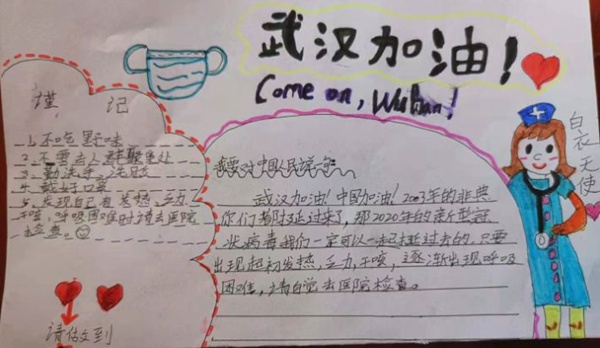 武汉加油！
Come on, Wuhan!
谨记
1、不吃野味
2、不要去人群聚集处
3、勤洗手、洗口
4、戴好口罩
5、发现自己有发热，乏力
干咳，呼吸困难时请去医院
检查。
请做到
我要对中国人民说一句
武汉加油！中国加油！2003年的非典
你们都挺过来了，那2020年的新型冠
状病毒我们一定可以一起挺过去的，只要
出现起初发热，乏力，干咳，逐渐出现呼吸
困难，请自觉去医院检查。
白衣天使